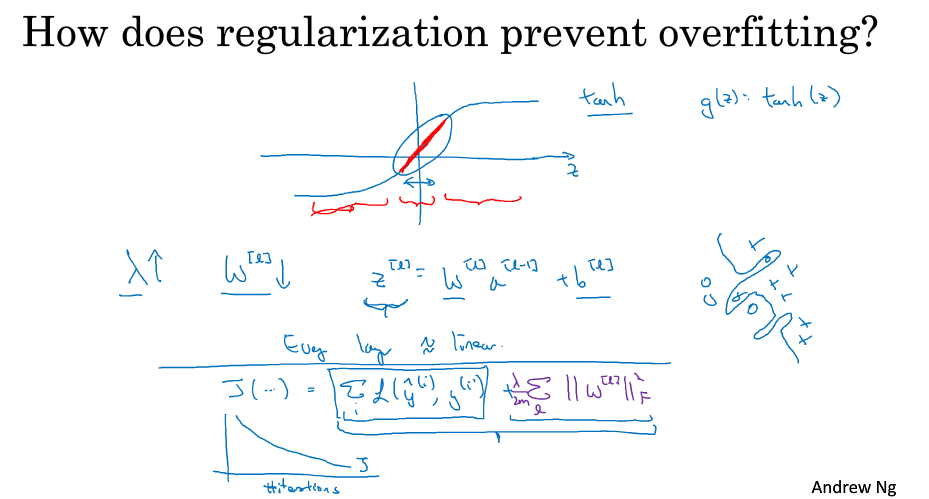 How does regularization prevent overfitting?
tanh g(z) = tanh(z)
z
λ↑ W^[l]↓ z^[l] = W^[l] a^[l-1] + b^[l]
Every layer ≈ linear.
J(…) = Σ_i L(ŷ^(i), y^(i)) + λ/2m Σ_l ||W^[l]||²_F
J
#iterations
Andrew Ng